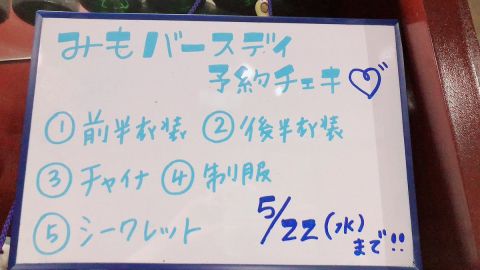 みもバースディ
予約チェキ♡
①前半衣装 ②後半衣装
③チャイナ ④制服
⑤シークレット
5/22(水)
まで!!